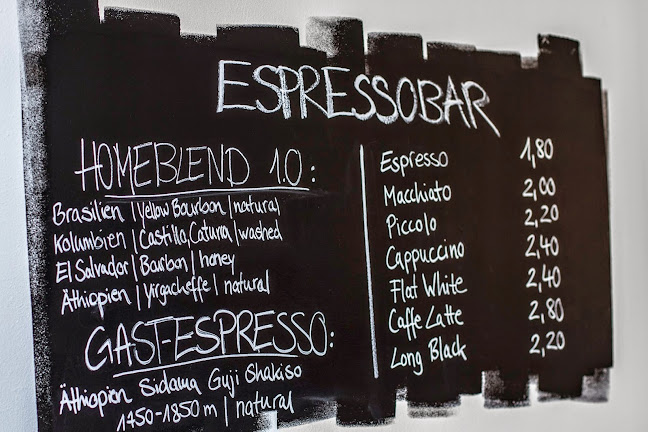 ESPRESSOBAR
HOMEBLEND 1.0:
Brasilien | Yellow Bourbon | natural
Kolumbien | Castilla, Caturra | washed
El Salvador | Bourbon | honey
Äthiopien | Yirgacheffe | natural
GAST-ESPRESSO:
Äthiopien Sidama Guji Shakiso
1750-1850 m | natural
Espresso 1,80
Macchiato 2,00
Piccolo 2,20
Cappuccino 2,40
Flat White 2,40
Caffe Latte 2,80
Long Black 2,20